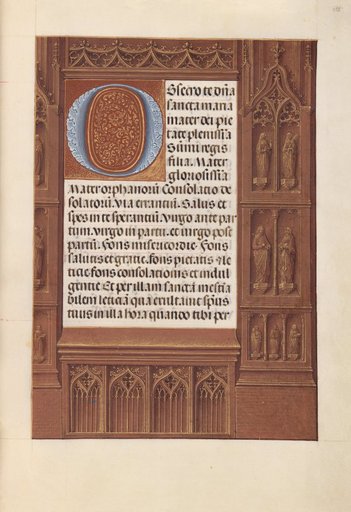 O Bsecro te dn̄a
sancta maria
mater dei pie
tate plenissīa
Sum̄i regis
filia. Mater
gloriosissīa
Mater orphanorū Consolatio de
solatorū. Via errantiū. Salus et
spes in te sperantiū. Virgo ante par
tum. virgo in partu. et virgo post
partū. Fons misericordie. Fons
salutis et gratie. fons pietatis et le
ticie fons consolationis et indul
gentie. Et per illam sanctā inestīa
bilem leticiā qua exultauit spūs
tuus in illa hora quando tibi per